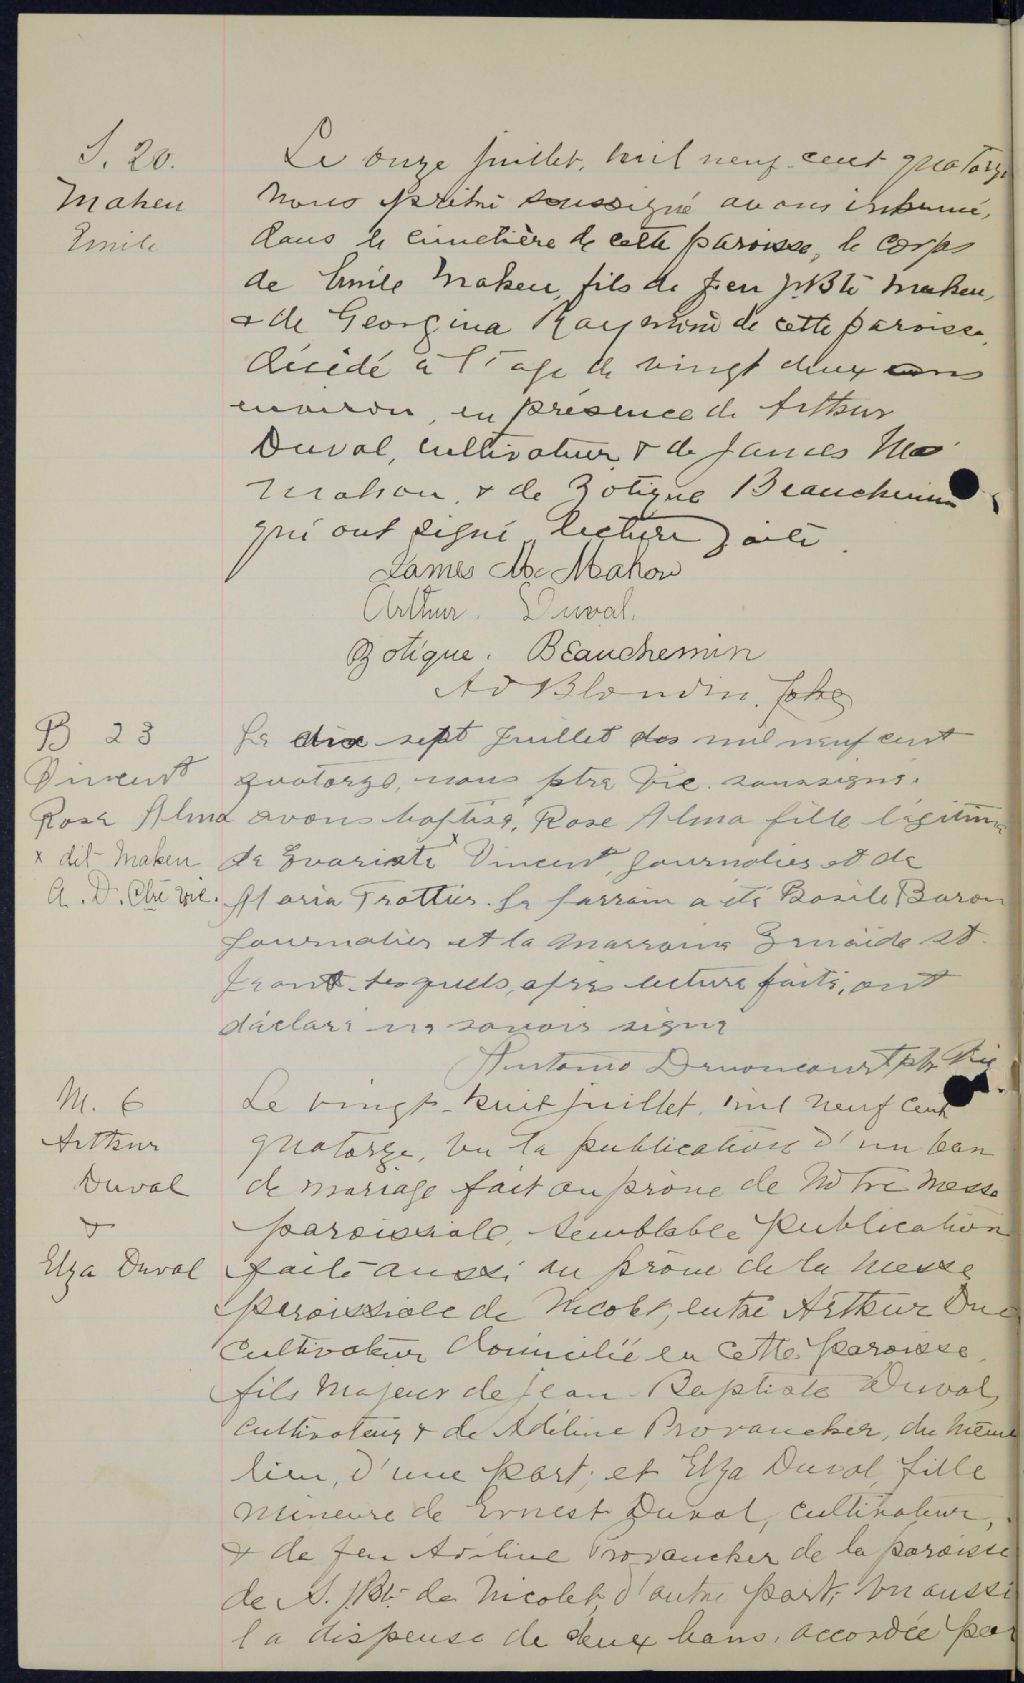 S. 20.
Maheu
Emile
Le onze juillet, mil neuf-cent quatorze
nous prêtre soussigné avons inhumé,
dans le cimetière de cette paroisse, le corps
de Emile Maheu, fils de feu J. Bte Maheu,
& de Georgina Raymond de cette paroisse,
décédé à l'age de vingt deux ans
environ, en présence de Arthur
Duval, cultivateur & de James Mc
Mahon, & de Zotique Beauchemin
qui ont signé, lecture faite.
James Mc Mahon
Arthur. Duval.
Zotique. Beauchemin
Ad Blondin,
B 23
Vincent
Rose Alma
x dit Maheu
A. D. vic.
Le dix sept Juillet mil neuf cent
quatorze, nous ptre Vic. soussigné.
avons baptisé, Rose Alma fille légitime
de Evariste x Vincent, journalier et de
Maria Trottier. Le parrain a été Basile Baron
journalier et la marraine Ernaide St
Jean lesquels, après lecture faite, ont
déclaré ne savoir signé
Antonio Drouncourt ptr Vic
M. 6
Arthur
Duval
&
Elza Duval
Le vingt-huit juillet, mil neuf cent
quatorze, vu la publication d'un ban
de mariage fait au prône de Notre Messe
paroissiale, semblable publication
faite aussi au prône de la messe
paroissiale de Nicolet, entre Arthur Duv
cultivateur domicilié en cette paroisse,
fils majeur de Jean-Baptiste Duval,
cultivateur & de Adéline Provancher, du même
lieu, d'une part; et Elza Duval, fille
mineure de Ernest Duval, cultivateur,
& de feu Adéline Provancher de la paroisse
de S. J. Bte de Nicolet, d'autre part; vu aussi
la dispense de deux bans, accordée par